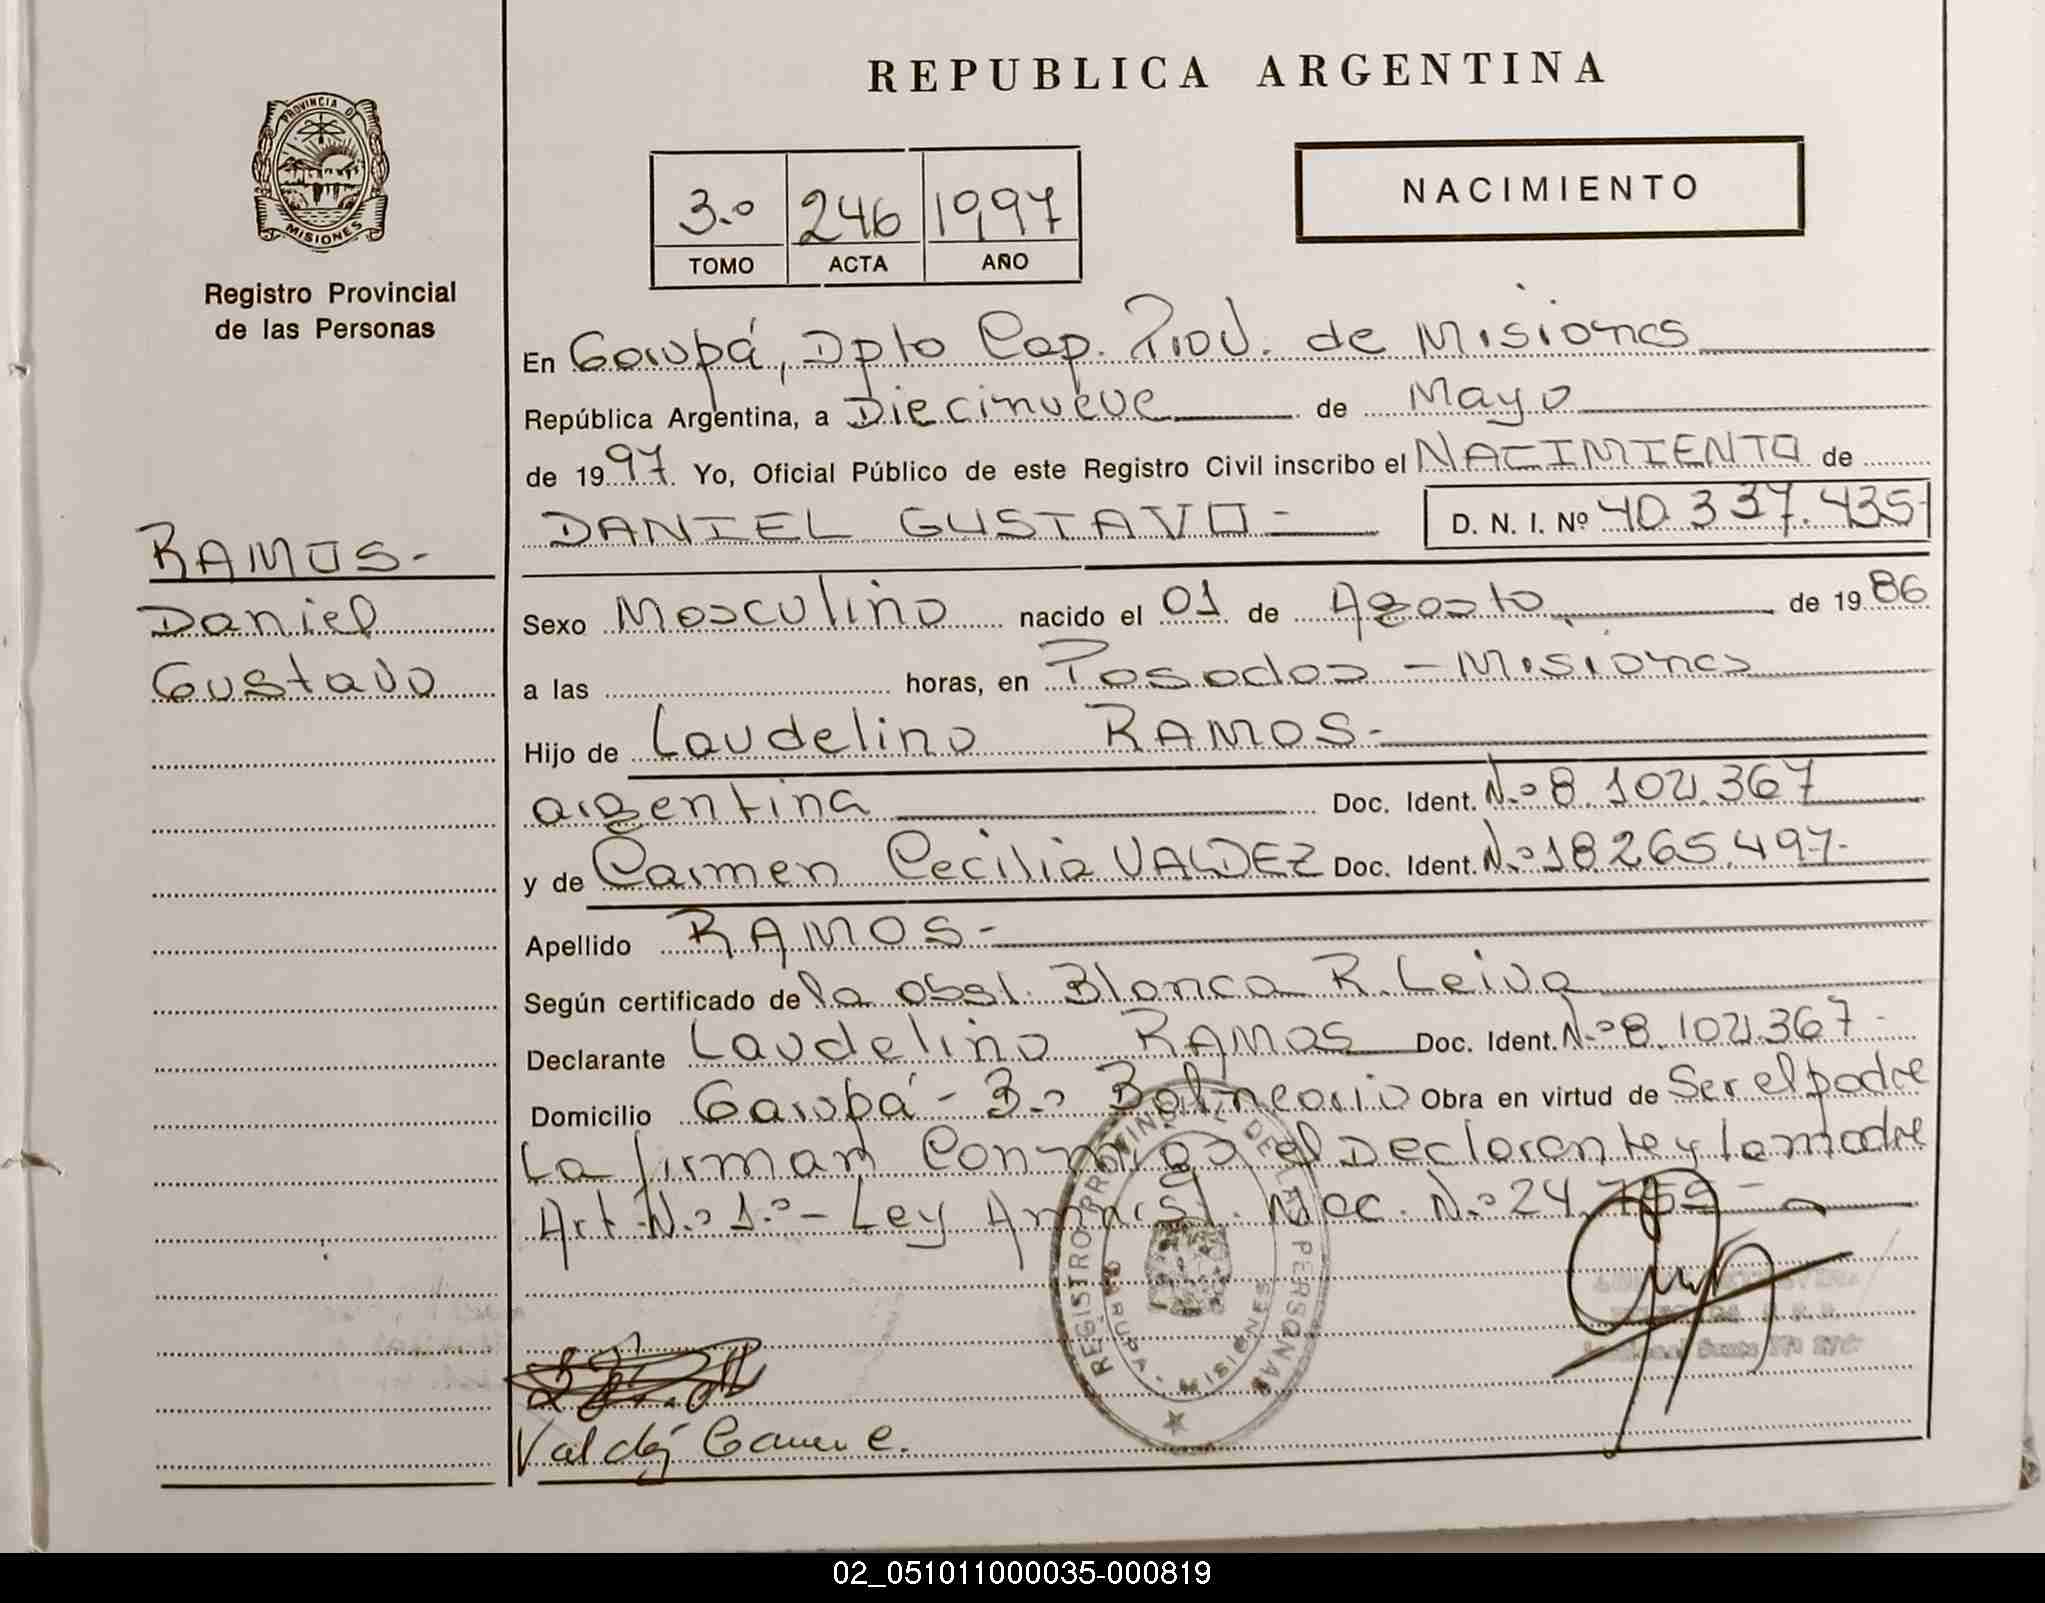 REPUBLICA ARGENTINA
PROVINCIA D
MISIONES
Registro Provincial
de las Personas
3.º 246 1997
TOMO ACTA AÑO
NACIMIENTO
En Garupá, Dpto Cap. Prov. de Misiones
República Argentina, a Diecinueve de Mayo
de 1997. Yo, Oficial Público de este Registro Civil inscribo el NACIMIENTO de
DANIEL GUSTAVO - D. N. I. Nº 40.337.435-
RAMOS-
Daniel
Gustavo
Sexo Masculino nacido el 01 de Agosto de 1986
a las horas, en Posadas - Misiones
Hijo de Laudelino RAMOS-
argentina Doc. Ident. N.º 8.102.367
y de Carmen Cecilia VALDEZ Doc. Ident. N.º 18.265.497-
Apellido RAMOS-
Según certificado de la obst. Blanca R. Leiva
Declarante Laudelino RAMOS Doc. Ident. N.º 8.102.367-
Domicilio Garupá - B.º Balneario Obra en virtud de Ser el padre
La firman Conmigo el Declarante y la madre
Art. N.º 1.º - Ley Amnist. Nac. N.º 24.755-
REGISTRO PROVINCIAL DE LAS PERSONAS
GARUPA - MISIONES
Valdéz Carmen C.
02_051011000035-000819